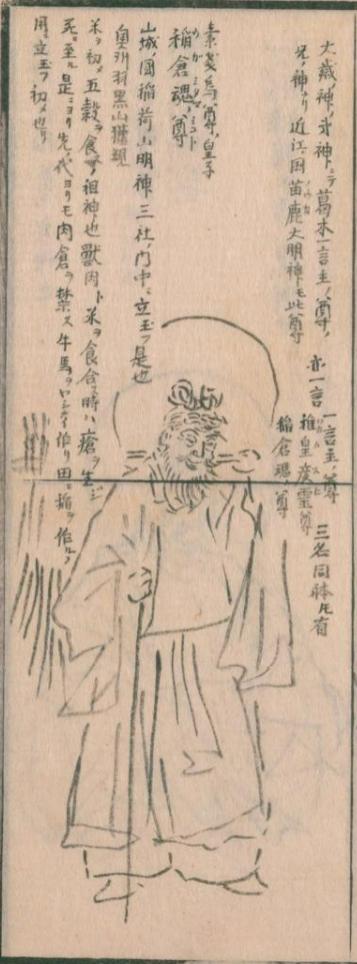 大歳神ノ弟神ニテ葛木一言主ノ尊ノ
兄ノ神ナリ近江ノ国苗鹿大明神モ此尊
亦一言
一言主ノ尊
稚皇産霊尊
稲倉魂ノ尊
三名同躰ﾄモ有
素戔烏尊ノ皇子
稲倉魂ノ尊
山城ノ国稲荷山明神三社ノ門中ニ立玉フ是也
奥州羽黒山権現
米ヲ初メ五穀ヲ食ノ祖神也獣肉ト米ヲ食合ス時ハ瘡ヲ生ジ
死ニ至ル是ニヨリ先代ヨリモ肉倉ヲ禁ス牛馬ヲ作リ田ニ稲ヲ作ル
用ニ立玉フ初メ也